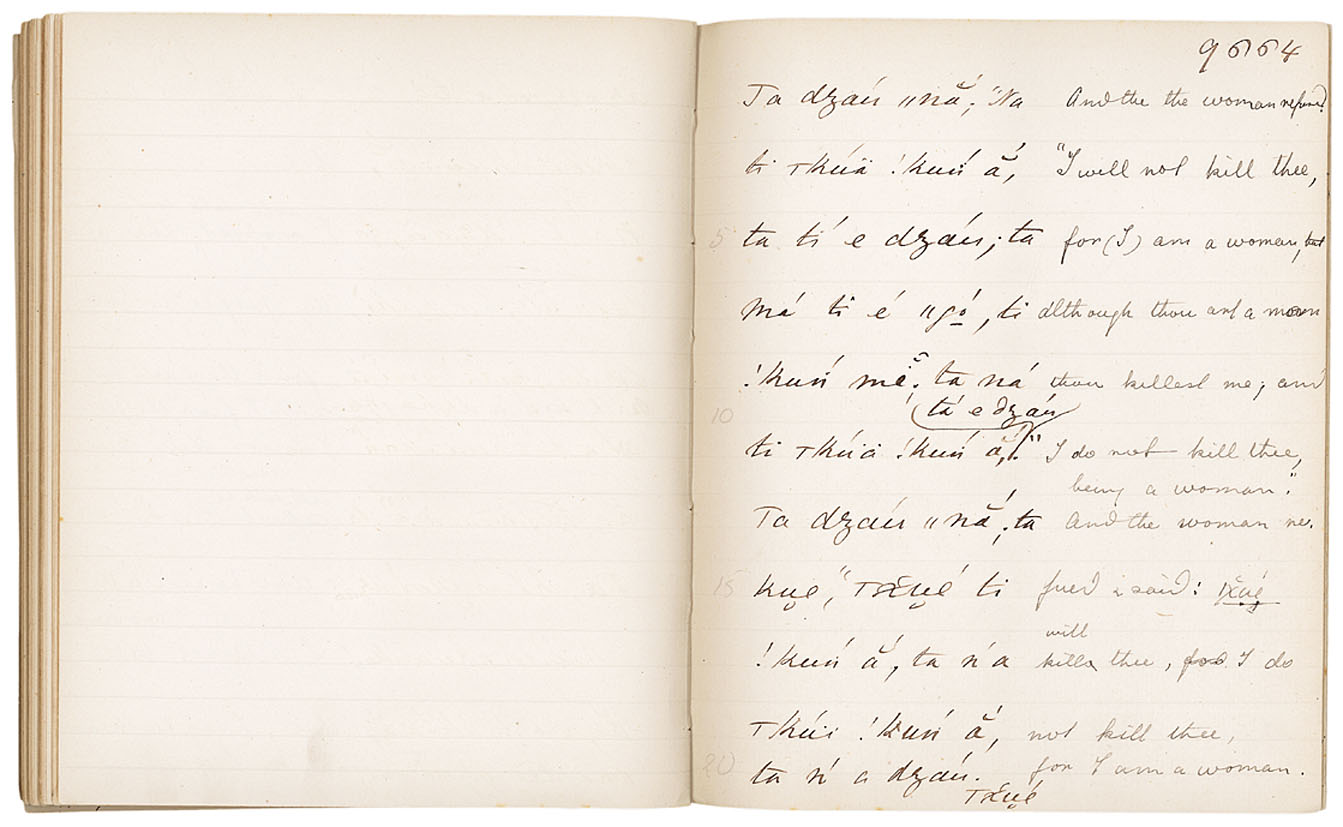 9664
Ta dzáú ‖nắ; "Na And the the woman refused.
ti τkúä !kuń ắ, "I will not kill thee,
5 ta tí e dzáú; ta for (I) am a woman, but
má ti é ‖gó, ti although thou art a man
!kuń mĕ; ta ná thou killest me; and
10 tá e dzáú
ti τkúä !kuń ắ!" I do not kill thee,
being a woman."
Ta dzáú ‖nắ; ta And the woman re-
15 kṷe, "Τx̆ṷé ti fused & said:
will
!kuń ắ, ta ń a kill thee, for I do
τkúi !kuń ắ, not kill thee,
20 ta ń a dzáú. for I am a woman.
Τx̆ṷé